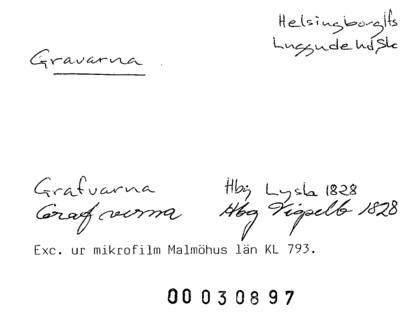 Helsingborg lfs
Luggude hd, Sk
Gravarna
Grafvarna Hbg Lysta 1828
Grafverna Hbg Vigselb 1828
Exc. ur mikrofilm Malmöhus län KL 793.
00 030897